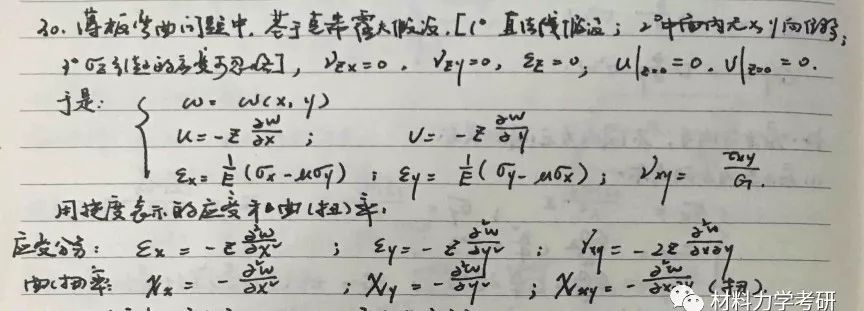 30. 薄板弯曲问题中, 基于克希霍夫假设, [1° 直法线假设; 2° 中面内无x,y向位移;
3° σz引起的应变可不计], γzx=0, γzy=0, εz=0; u|z=0=0. v|z=0=0.
于是: { ω=ω(x,y)
u=-z ∂w/∂x ; v=-z ∂w/∂y
εx=1/E(σx-μσy) ; εy=1/E(σy-μσx) ; γxy=τxy/G.
用挠度表示的应变和曲(扭)率:
应变分量: εx=-z ∂²w/∂x² ; εy=-z ∂²w/∂y² ; γxy=-2z ∂²w/∂x∂y
曲(扭)率: χx=-∂²w/∂x² ; χy=-∂²w/∂y² ; χxy=-∂²w/∂x∂y (扭).
材料力学考研